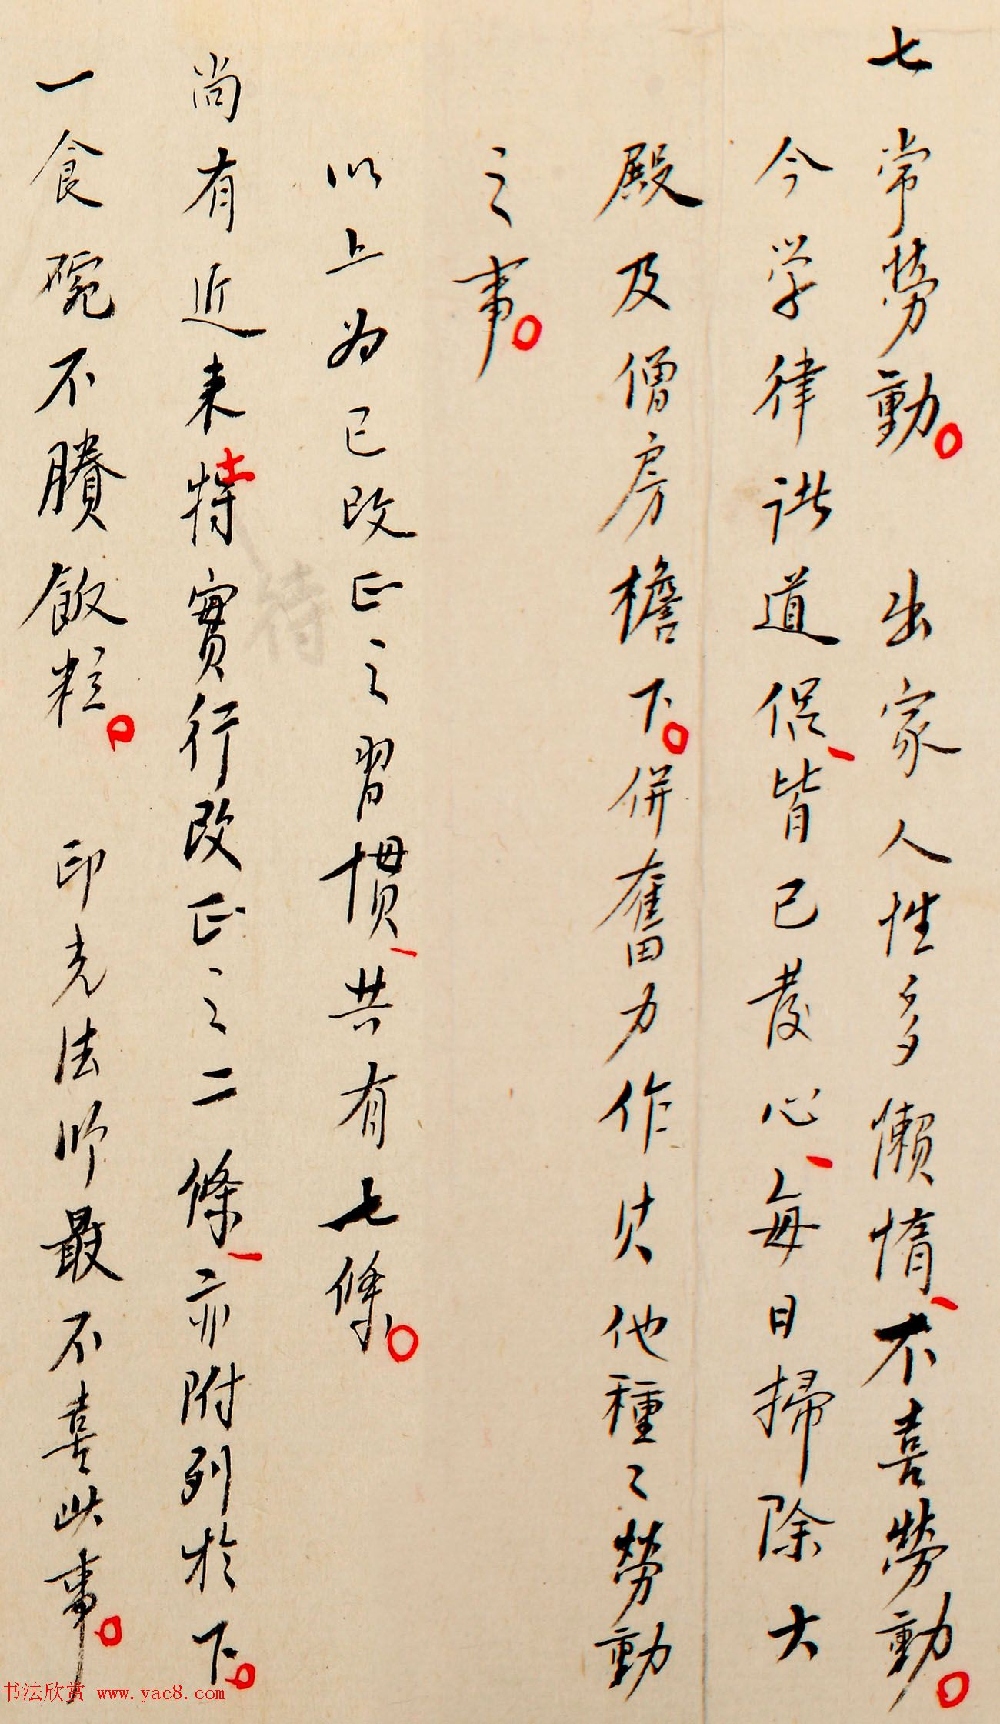 七 常勞動。 出家人性多懶惰、不喜勞動。
今学律諸道侶、皆已發心、每日掃除大
殿及僧房檐下。併奮力作其他種々勞動
之事。
以上为已改正之習慣、共有七條。
尚有近来特實行改正之二條、亦附列於下。
待
一食碗不賸飯粒。 印光法師最不喜此事。
书法欣赏 www.yac8.com